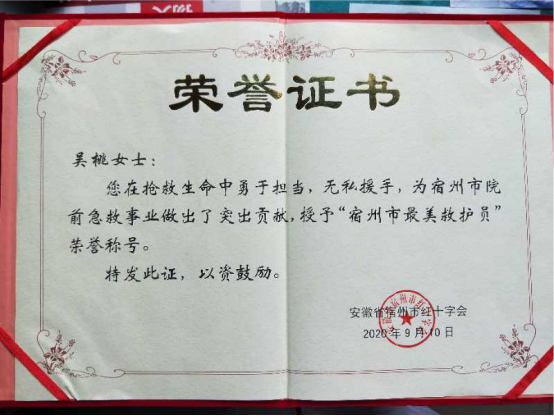 荣誉证书
吴桃女士：
您在抢救生命中勇于担当，无私援手，为宿州市院
前急救事业做出了突出贡献，授予“宿州市最美救护员”
荣誉称号。
特发此证，以资鼓励。
安徽省宿州市红十字会
2020年9月10日